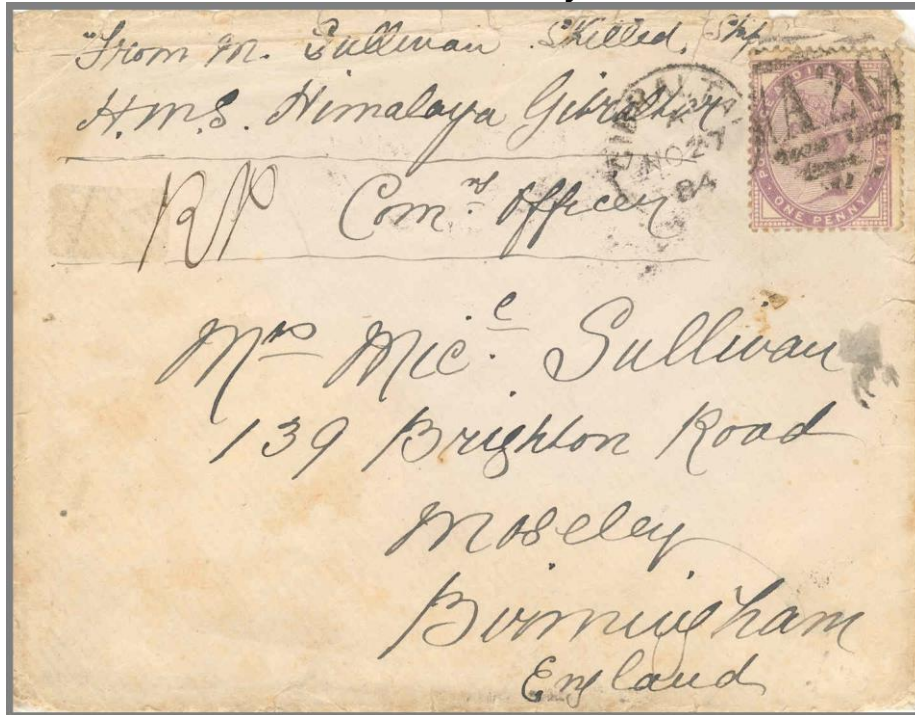 From M. Sullivan Skilled Shp
H.M.S. Himalaya Gibraltar
GIBRALTA
NO 27
84
A26
POSTAGE AND INLAND REVENUE
ONE PENNY
RP Comng Officer
Mrs Micl Sullivan
139 Brighton Road
Moseley
Birmingham
England